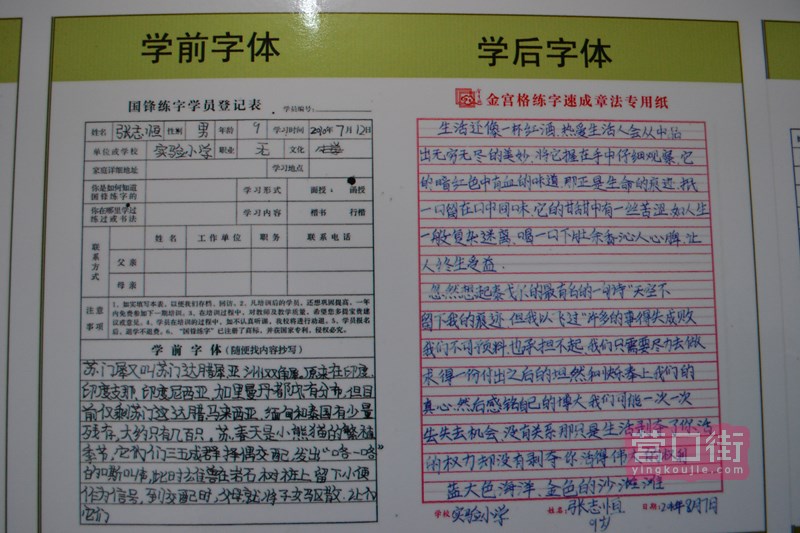 学前字体
国锋练字学员登记表 学员编号:
姓名 张志恒 性别 男 年龄 9 学习时间 2010年7月12日
单位或学校 实验小学 职业 无 文化
家庭详细地址 学习地点
你是如何知道国锋练字的 学习形式 面授: 函授
你在哪里学过练过或书法 学习内容 楷书 行楷
联系方式 姓名 工作单位 职务 联系电话
父亲
母亲
注意事项
1、如实填写本表,以便我们存档、回访。2、凡培训后的学员,还想巩固提高,一年
内免费参加下一期培训。3、在培训过程中,对教师及教学质量,希望您多提宝贵建
议或意见。4、学员在培训的过程中,如不认真听课,我校将进行劝退。5、学员报名
后,退学不退费。6、“国锋练字”已注册了商标,并获国家专利,侵权必究。
学前字体(随便找内容抄写)
苏门犀又叫苏门达腊犀亚洲双角犀,原来在印度,
印度支那、印度尼西亚、加里曼丹都有分布,但目
前仅剩苏门达腊马来西亚、缅甸和泰国有少量
残存,大约只有几百只,春天是小熊猫的繁殖
季节,它们三五成群择偶交配,发出“咯-咯”
的叫声,此时在岩石树桩上留下小便
作为信号,到交配时,
它们
学后字体
金宫格练字速成章法专用纸
生活还像一杯红酒,热爱生活人会从中品
出无穷无尽的美妙,将它握在手中仔细观察,它
的暗红色中有血的味道,那正是生命的痕迹,抿
一口留在口中回味,它的甘甜中有一些苦涩,如人生
一般复杂迷离,喝一口下肚,余香沁人心脾,让
人终生受益.
忽然想起泰戈尔的最有名的一句诗“天空下
留下我的痕迹,但我以飞过”许多的事得失成败
我们不可预料,也承担不起,我们只需要尽力去做
求得一份付出之后的坦然和快乐奉上我们的
真心,然后感铭自己的博大,我们可能一次一次
失去机会,没有关系那只是生活剥夺了你活
的权力却没有剥夺你活得伟大
蓝大色海洋,金色的沙滩
学校: 实验小学 姓名: 张志恒 日期: 8月7日
9岁
营口街
yingkoujie.com